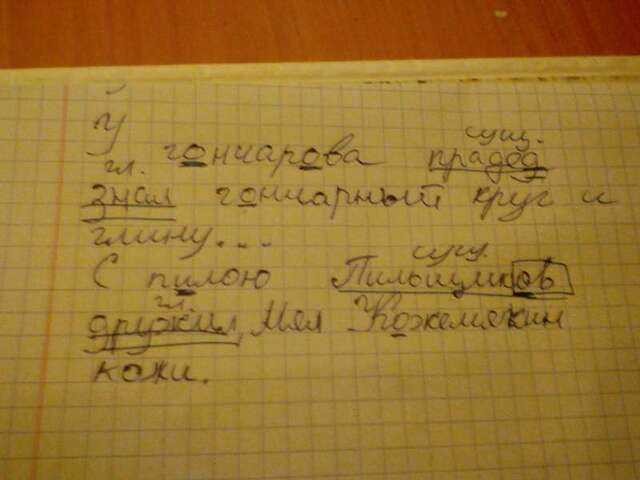 У
сущ.
гончарова прадед
гл.
знал гончарный круг и
глину...
сущ.
С пилою Пильщиков
гл.
дружил, Мял Кожемякин
кожи.